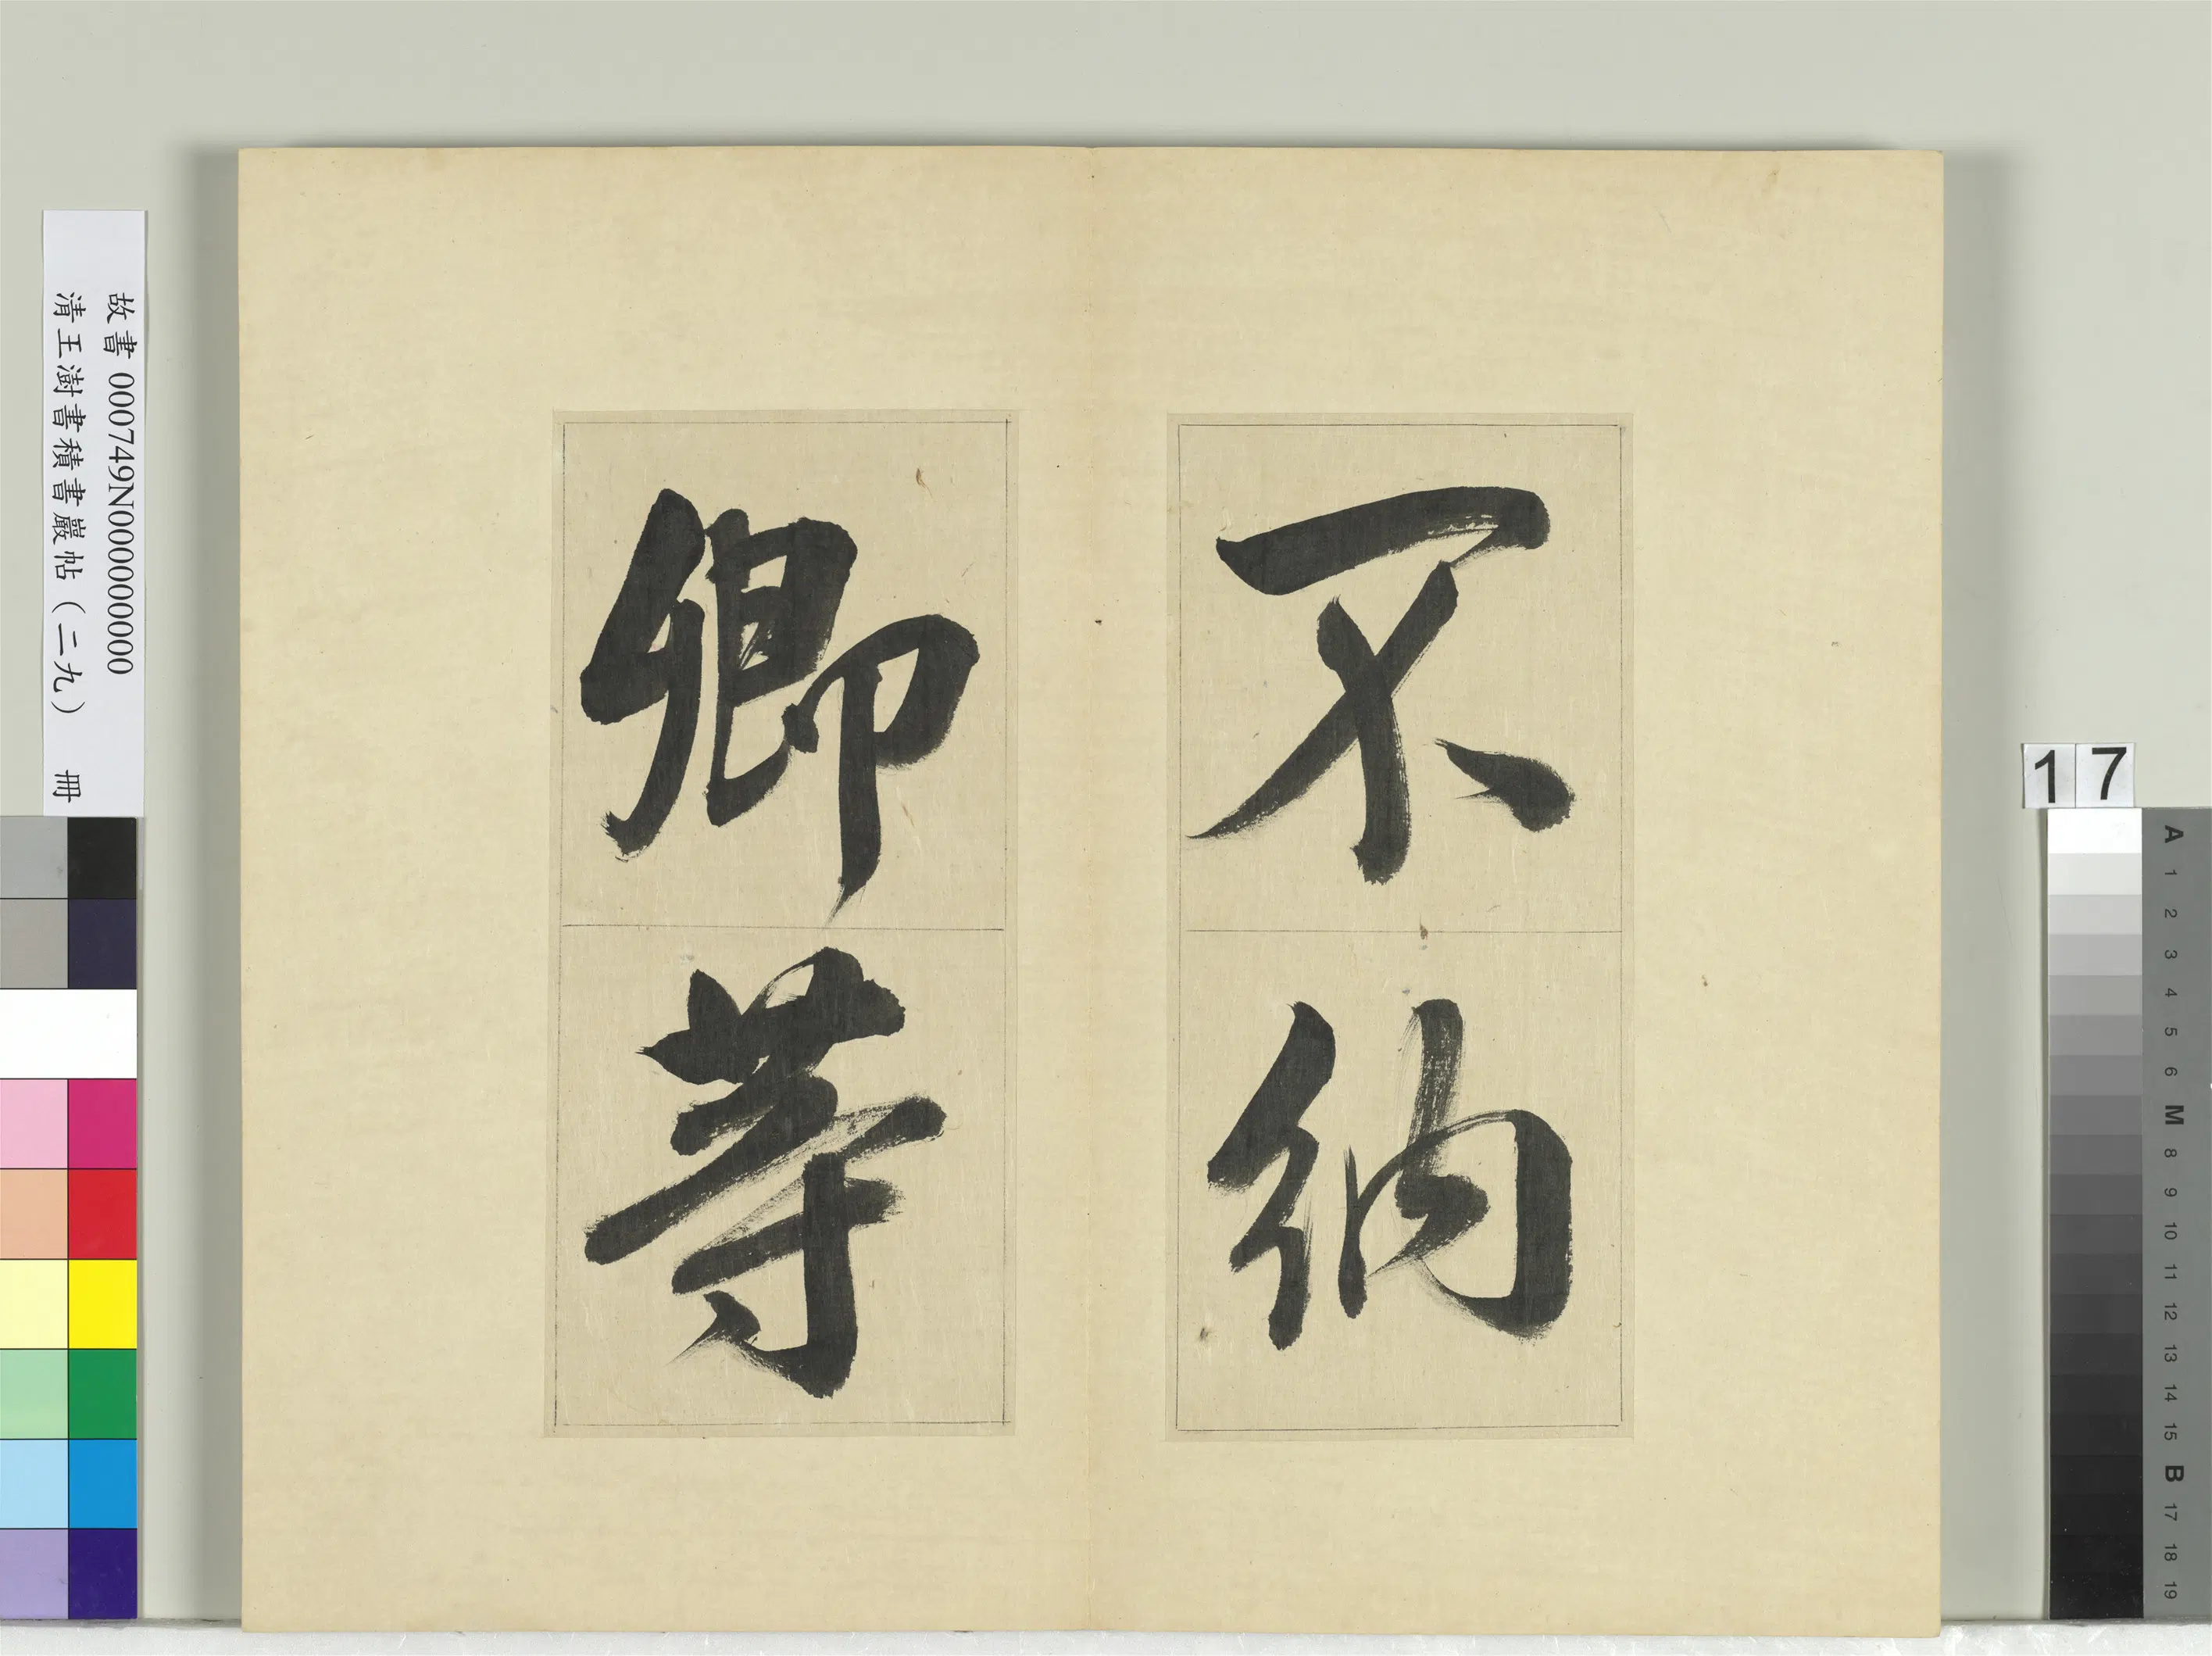 不納
卿等
故書 000749N000000000
清王澍書積書巖帖（二九） 冊
17
A
1
2
3
4
5
6
M
8
9
10
11
12
13
14
15
B
17
18
19